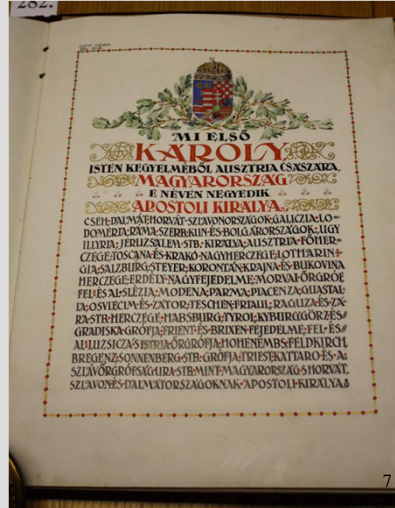 282.
MI ELSŐ
KÁROLY
ISTEN KEGYELMÉBŐL AUSZTRIA CSÁSZÁRA,
MAGYARORSZÁG
E NÉVEN NEGYEDIK
APOSTOLI KIRÁLYA,
CSEH, DALMÁT, HORVÁT, SZLAVONORSZÁGOK, GALICZIA, LO=
DOMÉRIA, RÁMA, SZERB, KUN ÉS BOLGÁRORSZÁGOK, ÚGY
ILLYRIA, JERUZSÁLEM STB. KIRÁLYA, AUSZTRIA FŐHER=
CZEGE, TOSCANA ÉS KRAKÓ NAGYHERCZEGE, LOTHARIN=
GIA, SALZBURG, STEYER, KORONTÁN, KRAJNA ÉS BUKOVINA
HERCZEGE, ERDÉLY NAGYFEJEDELME, MORVAI ŐRGRÓF,
FEL ÉS AL SLÉZIA, MODENA, PARMA, PIACENZA, GUASTAL=
LA, OSVIECIM ÉS ZATOR, TESCHEN, FRIAUL, RAGUZA ÉS ZÁ=
RA STB. HERCZEGE, HABSBURG, TYROL, KYBURG, GÖRZ ÉS
GRADISKA GRÓFJA, TRIENT ÉS BRIXEN FEJEDELME, FEL ÉS
AL LUZSICZA S ISTRIA ŐRGRÓFJA, HOHENEMBS, FELDKIRCH,
BREGENZ, SONNENBERG STB. GRÓFJA, TRIEST, KATTARO ÉS A
SZLÁV ŐRGRÓFSÁG URA STB. MINT MAGYARORSZÁG S HORVÁT,
SZLAVON ÉS DALMÁTORSZÁGOKNAK APOSTOLI KIRÁLYA.
7